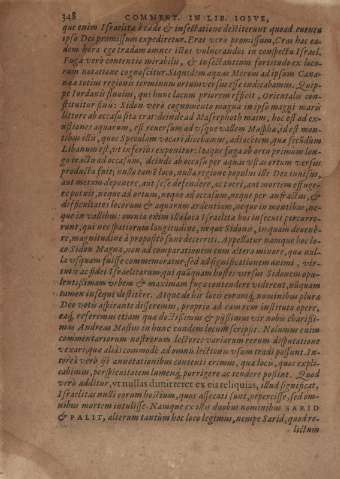 348 COMMENT. IN LIB. IOSVE,
que enim Israelitæ cæde & insectatione destiterunt quoad euentu
ipso Dei promissum expeditetur. Erat verò promissum, Cras hac ea-
dem hora ego tradam omnes illos vulnerandos in conspectu Israel.
Fuga verò contentio mirabilis, & insectantium fortitudo ex loco-
rum notatione cognoscitur. Siquidem aquas Merom ad ipsum Cana-
nææ totius regionis terminum orsum versus esse indicabamus. Quip-
pe Iordanis fluuius, qui hunc lacum priorem efficit, Orientalis con-
stituitur finis: Sidon verò cognomento magna in ipso magni maris
littore ab occasu sita erat: deinde ad Masrephoth maim, hoc est ad ex-
ustiones aquarum, est reuersum ad vsque vallem Masphæ, id est mon-
tibus est, quos Speculum vocari dicebamus, adiectum, quæ secundùm
Libanum est, vt inferiùs exponitur: itaque fuga ab ortu primum lon-
go tractu ad occasum, deinde ab occasu per aquas vsus ortum versus
producta fuit; nullusque loco, nulla regione populus ille Dei inuisus,
aut metum deponere, aut sese defendere, aut veri, aut mortem effuge-
re potuit, neque ad ortum, neque ad occasum, neque per anfractus, &
difficultates locorum & aquarum orientium, neque in montibus, ne-
que in vallibus: omnia enim illa loca Israelitæ hos insecuti percurre-
runt, qui nec spatiorum longitudine, neque Sidonis, in quam deuene-
re, magnitudine à proposito sunt deterriti. Appellatur namque hoc lo-
co Sidon Magna, non ad comparationem cum altera minore, quæ nul-
la vsquam fuisse commemoratur, sed ad significationem animi, vir-
tutis ac fidei Israelitarum, qui quanquam hostes versus Sidonem opu-
lentissimam vrbem & maximam fuga contendere viderent, nusquam
tamen insequi destitere. Atque de his locis eorumque nominibus plura
Deo votis aspirante disseremus, proprio ad eam rem instituto opere,
eaque referemus etiam quæ doctissimus & piissimus vir nobis charissi-
mus Andreas Masius in hunc eundem locum scripsit. Nolumus enim
commentariorum nostrorum lectores variarum rerum disputatione
vexari, quæ aliàs commodè ad omnis lectionis vsum tradi possunt. In-
terea verò ijs annotationibus contenti erimus, quæ locis, quos expli-
cabimus, perspicuitatem lumenque porrigere ac tendere possint. Quod
verò additur, vt nullas dimitteret ex eis reliquias, illud significat,
Israelitas nulli eorum hostium, quos assecuti sunt, pepercisse, sed om-
nibus mortem intulisse. Namque ex illis duobus nominibus SARID
& PALIT, alterum tantùm hoc loco legimus, nempe Sarid, quod re-
lictum